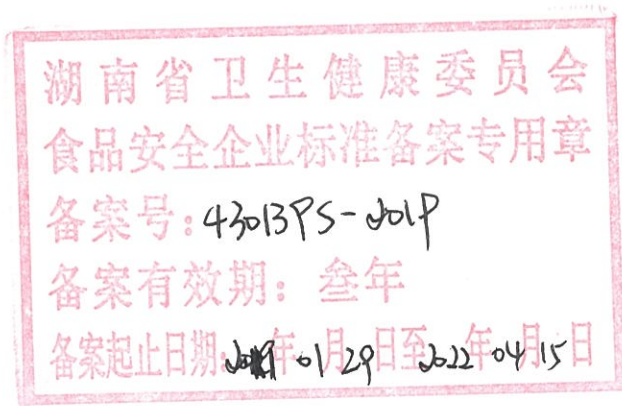 湖南省卫生健康委员会
食品安全企业标准备案专用章
备案号：430139S-2019
备案有效期：叁年
备案起止日期：2019年01月29日至2022年04月15日